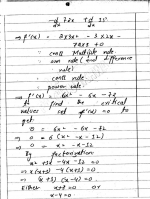 d/dx 72x + d/dx 15
⇒ f'(x) = 2x3x² - 3x2x -
72x1 + 0
∴ const Multiple rule.
∴ sum rule (and difference
rule)
∴ const rule.
∴ power rule.
⇒ f'(x) = 6x² - 6x - 72
To find the critical
values set f'(x) = 0 to
get
0 = 6x² - 6x - 72
⇒ 0 = 6 (x² - x - 12)
⇒ 0 = x² - x - 12
By factorization
x² + 3x - 4x - 12 = 0
⇒ x(x+3) - 4(x+3) = 0
⇒ (x+3) (x-4) = 0
Either x+3 = 0 or
x-4 = 0